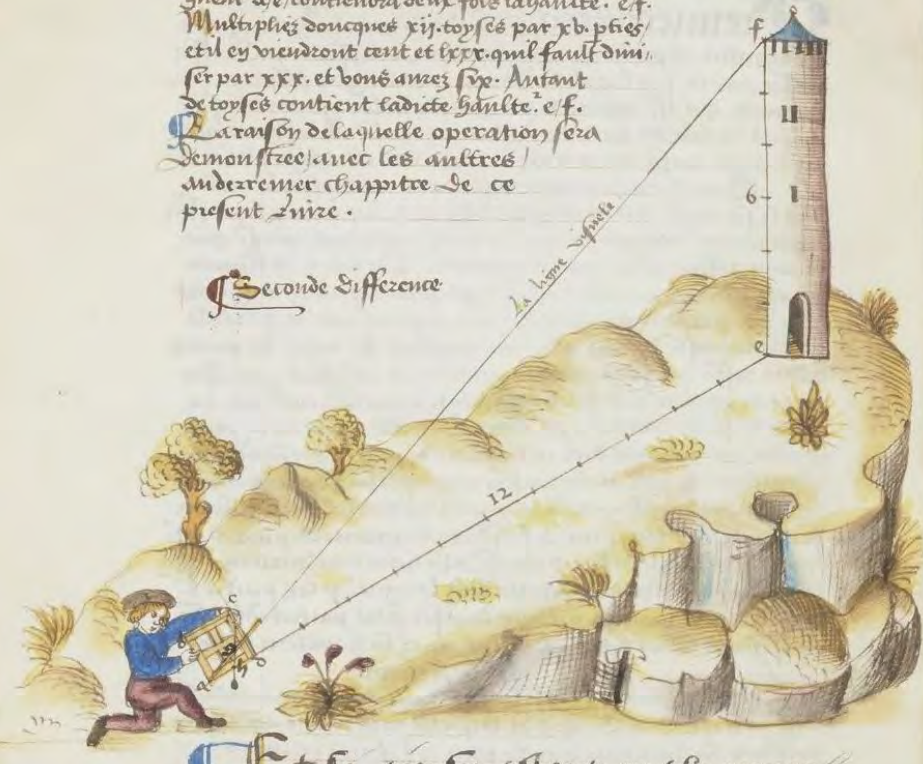 contiendra deux fois la haulte. e/f.
Multipliez doncques xii. toyses par xv. pties/
et il en viendront cent et lxxx. quil fault divi/
ser par xxx. et vous aurez six. Autant
de toyses contient ladicte haulte. e/f.
La raison de laquelle operation sera
demonstree/ avec les aultres/
au derrenier chappitre de ce
present livre.
Seconde difference
f
II
6
I
La ligne visuele
e
12
c
b
a